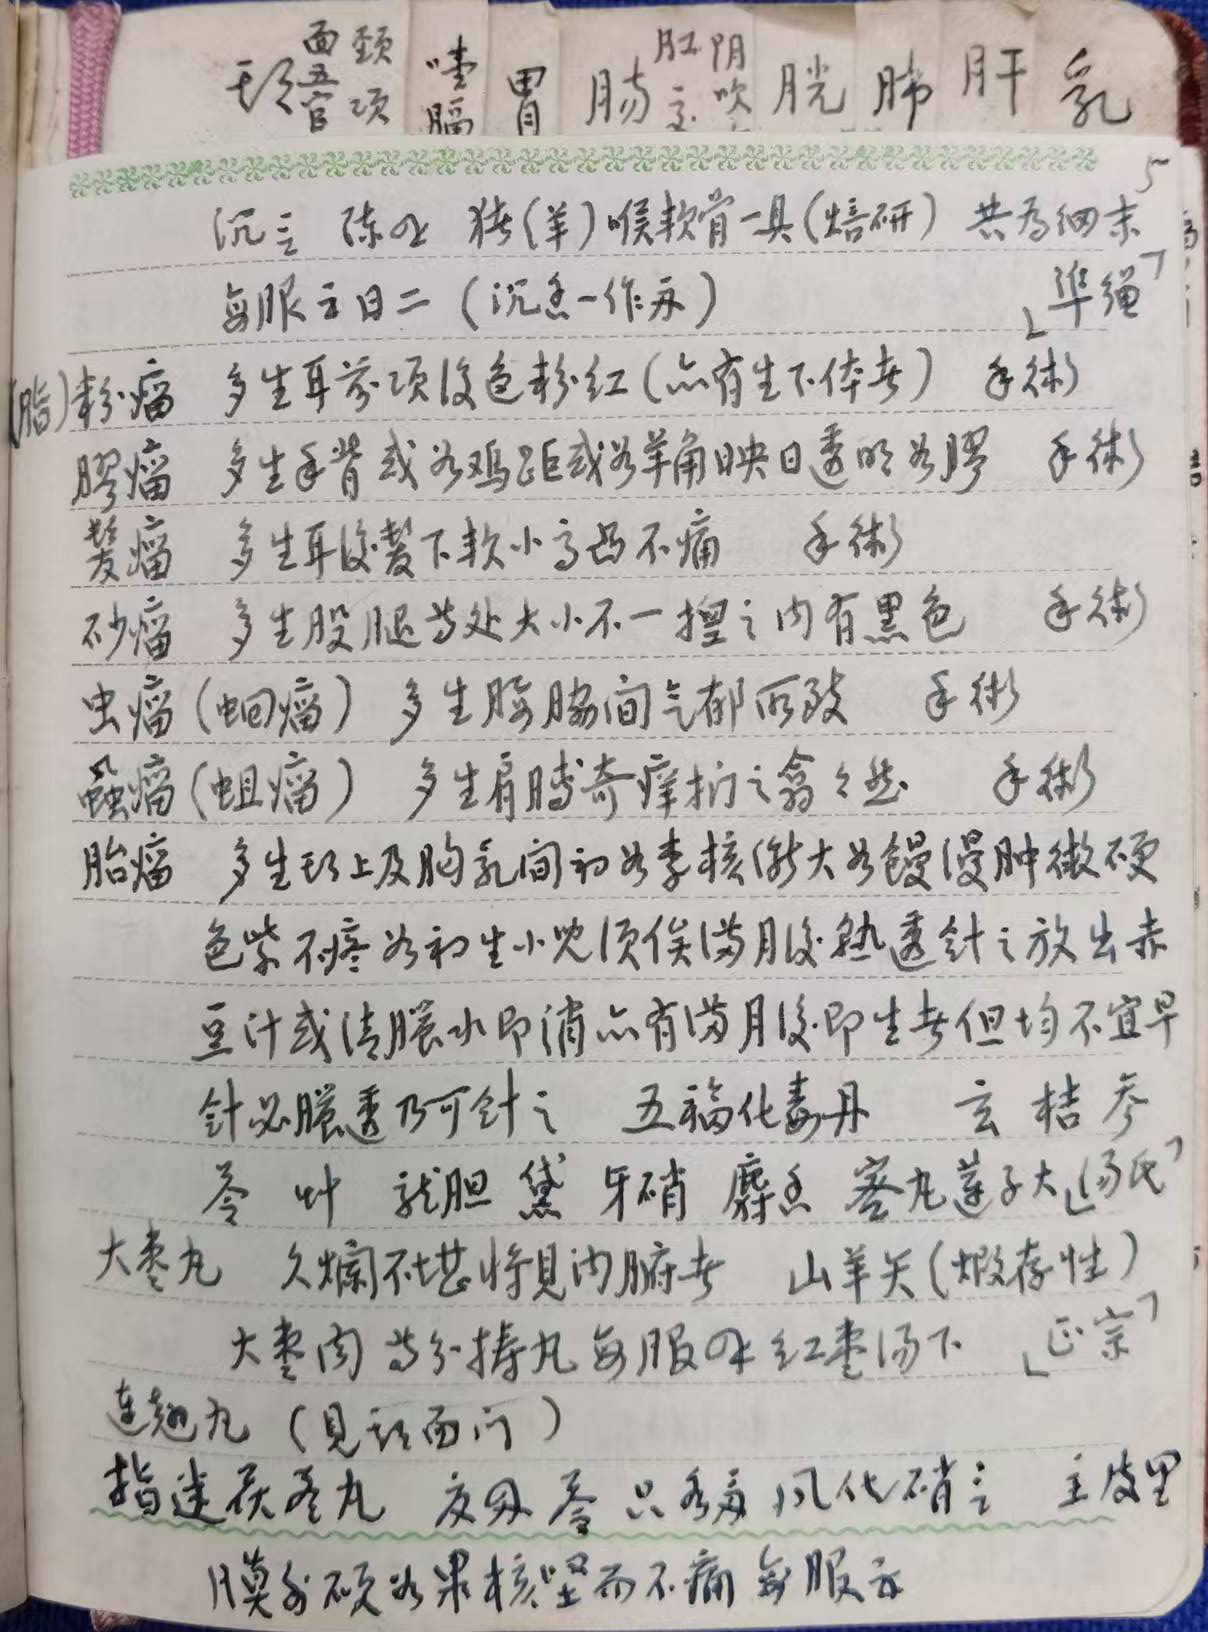 头 面五官 颈项 噎膈 胃 肠 肛 阴吹 胱 肺 肝 乳
5
沉 陈 猪(羊)喉软骨一具(焙研) 共为细末
每服 日二(沉香一作 ) 「準绳」
(脂)粉瘤 多生耳前项後色粉红(亦有生下体者) 手術
膠瘤 多生手背或如鸡距或如羊角映日透明如膠 手術
髪瘤 多生耳後髪下软小高凸不痛 手術
砂瘤 多生股腿等处大小不一揑之内有黑色 手術
虫瘤(蛔瘤) 多生腰脇间气郁所致 手術
蝨瘤(蛆瘤) 多生肩膊奇痒 之翕々然 手術
胎瘤 多生头上及胸乳间初如李核渐大如馒漫肿微硬
色紫不疼如初生小児须俟满月後熟透針之放出赤
豆汁或清膿水即消亦有满月後即生者但均不宜早
針必膿透乃可針之 五福化毒丹 玄 桔 参
苓 龙胆 黛 牙硝 麝香 蜜丸莲子大「汤氏」
大枣丸 久爛不堪将見内腑者 山羊矢(煅存性)
大枣肉 等分捣丸每服 红枣汤下 「正宗」
连翘丸 (見头面门)
指迷茯苓丸 苓 只 风化硝 主皮里
膜外硬如果核坚而不痛每服